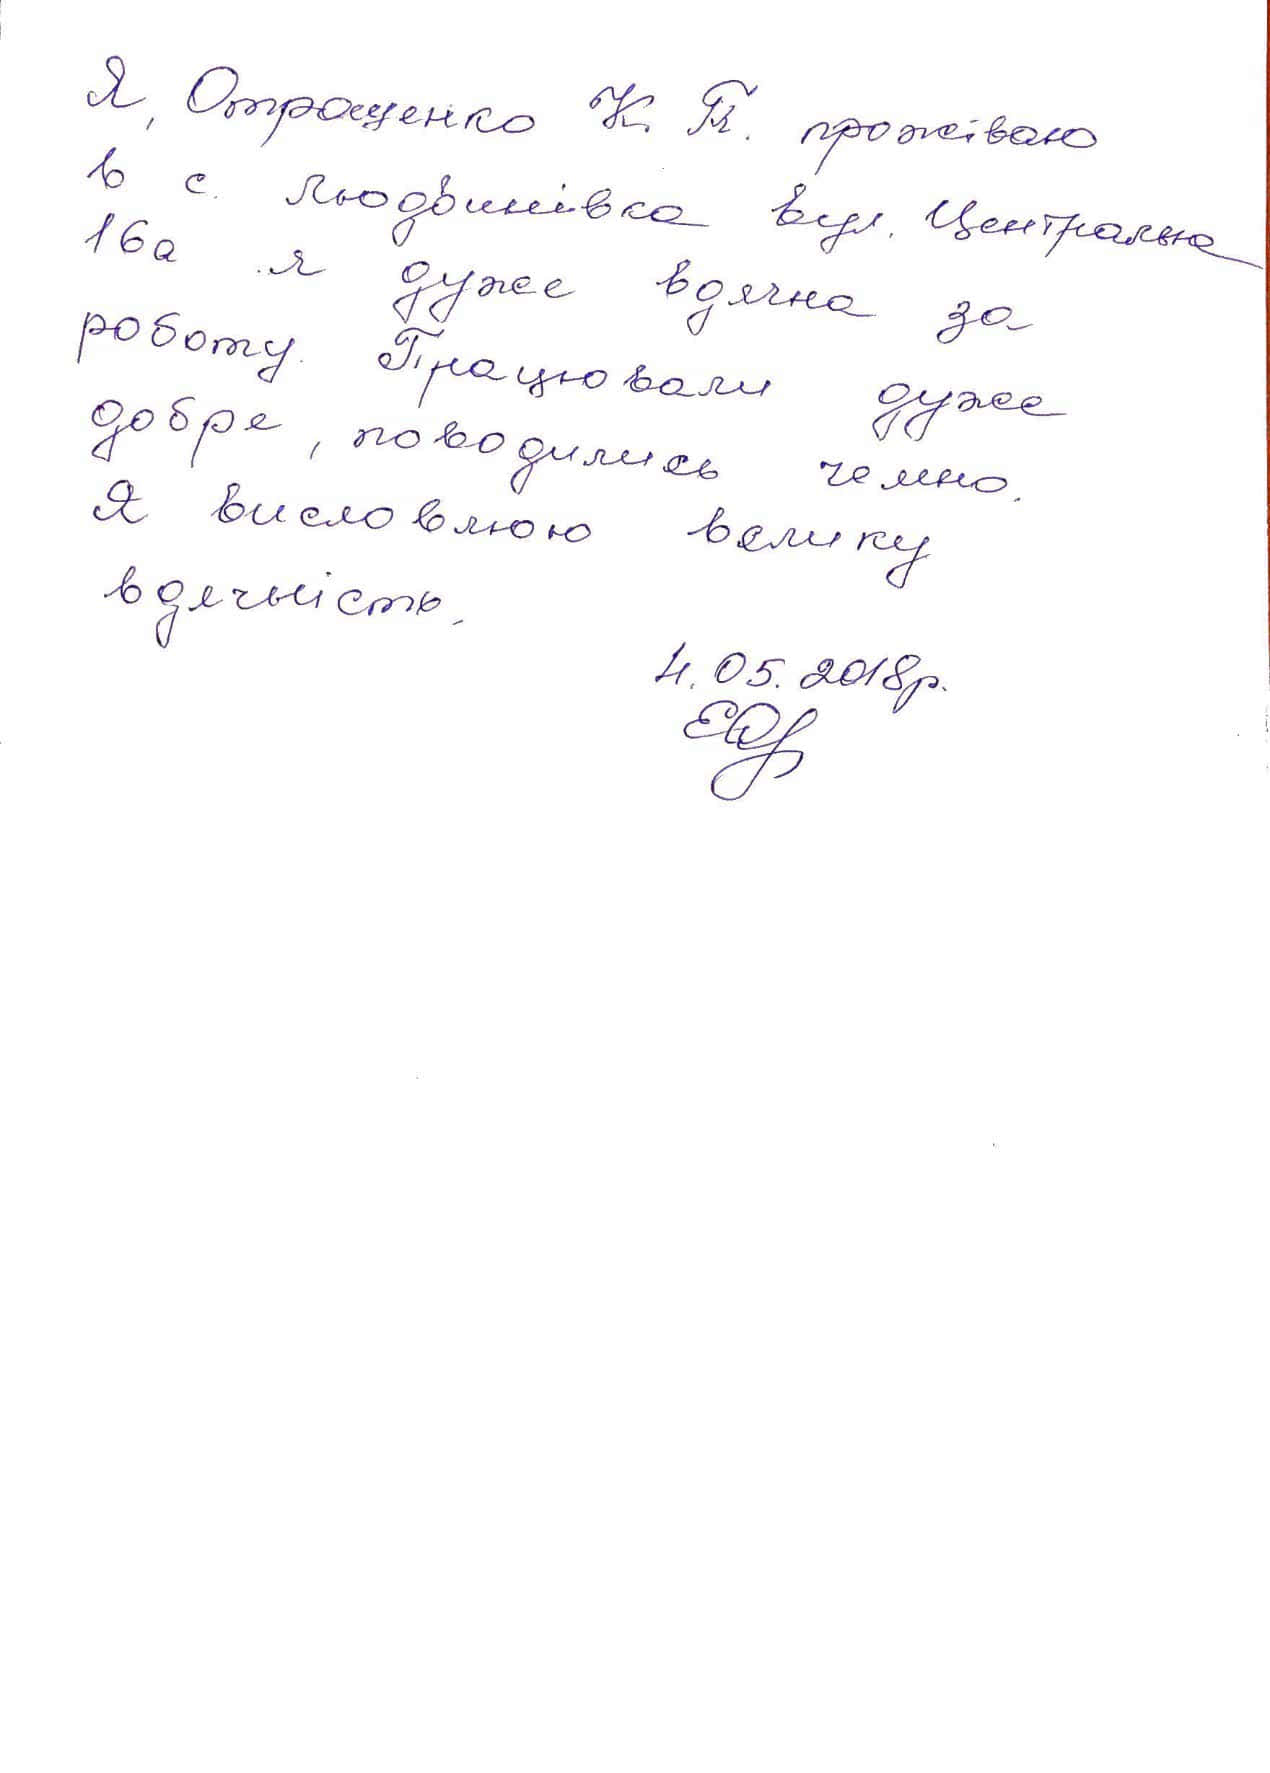 Я, Отрощенко К. П. проживаю
в с. Людвинівка вул. Центральна
16а я дуже вдячна за
роботу. Працювали дуже
добре, поводились чемно.
Я висловлюю велику
вдячність.
4.05.2018р.